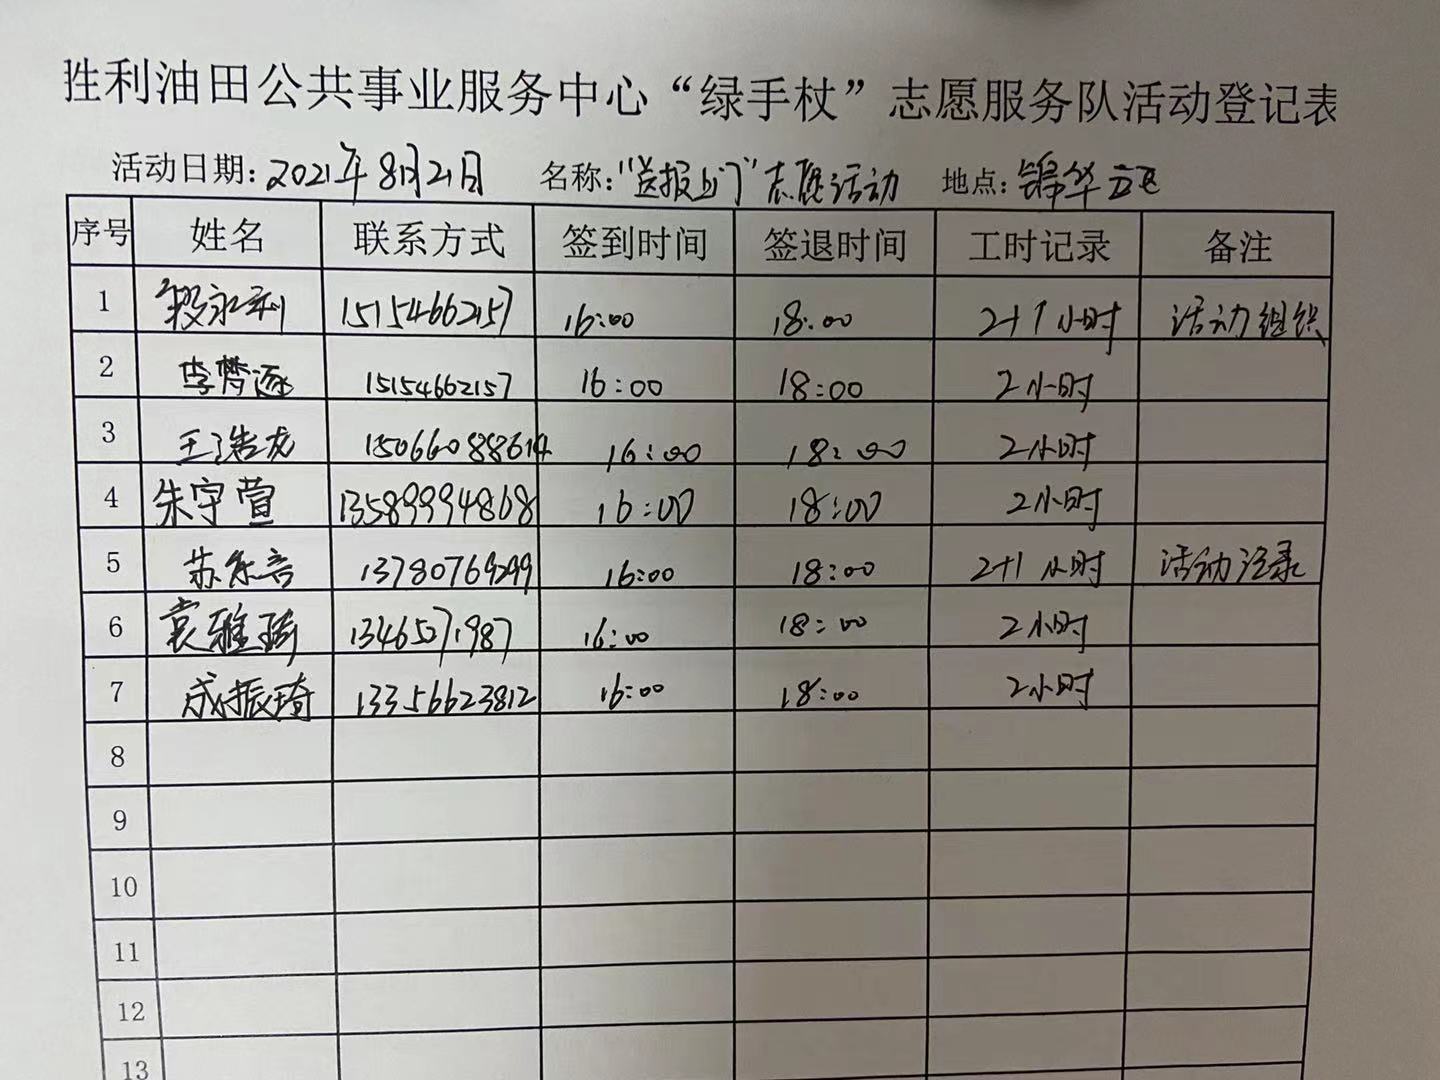 胜利油田公共事业服务中心“绿手杖”志愿服务队活动登记表
活动日期：2021年8月21日 名称：“送报上门”志愿活动 地点：锦华六区
序号 姓名 联系方式 签到时间 签退时间 工时记录 备注
1 段永利 15154662157 16:00 18:00 2+1小时 活动组织
2 李梦逐 15154662157 16:00 18:00 2小时
3 王浩龙 15066088614 16:00 18:00 2小时
4 朱宇萱 13589994868 16:00 18:00 2小时
5 苏乐言 13780769299 16:00 18:00 2+1小时 活动记录
6 袁雅琦 13465071987 16:00 18:00 2小时
7 成振琦 13356623812 16:00 18:00 2小时
8
9
10
11
12
13